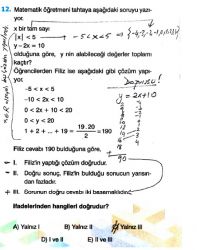 12. Matematik öğretmeni tahtaya aşağıdaki soruyu yazıyor.
x bir tam sayı
|x| < 5 → -5 < x < 5 →
y – 2x = 10
olduğuna göre, y nin alabileceği değerler toplamı kaçtır?
Öğrencilerden Filiz ise aşağıdaki gibi çözüm yapıyor.
Doğrusu!
-5 < x < 5
y = 2x+10
-10 < 2x < 10
0 < 2x + 10 < 20
0 < y < 20
1 + 2 + .. + 19 = 19.20 / 2 = 190
90
Filiz cevabı 190 bulduğuna göre,
I. Filiz'in yaptığı çözüm doğrudur.
II. Doğru sonuç, Filiz'in bulduğu sonucun yarısından fazladır.
III. Sorunun doğru cevabı iki basamaklıdır.
ifadelerinden hangileri doğrudur?
A) Yalnız I B) Yalnız II C) Yalnız III
D) I ve II E) II ve III